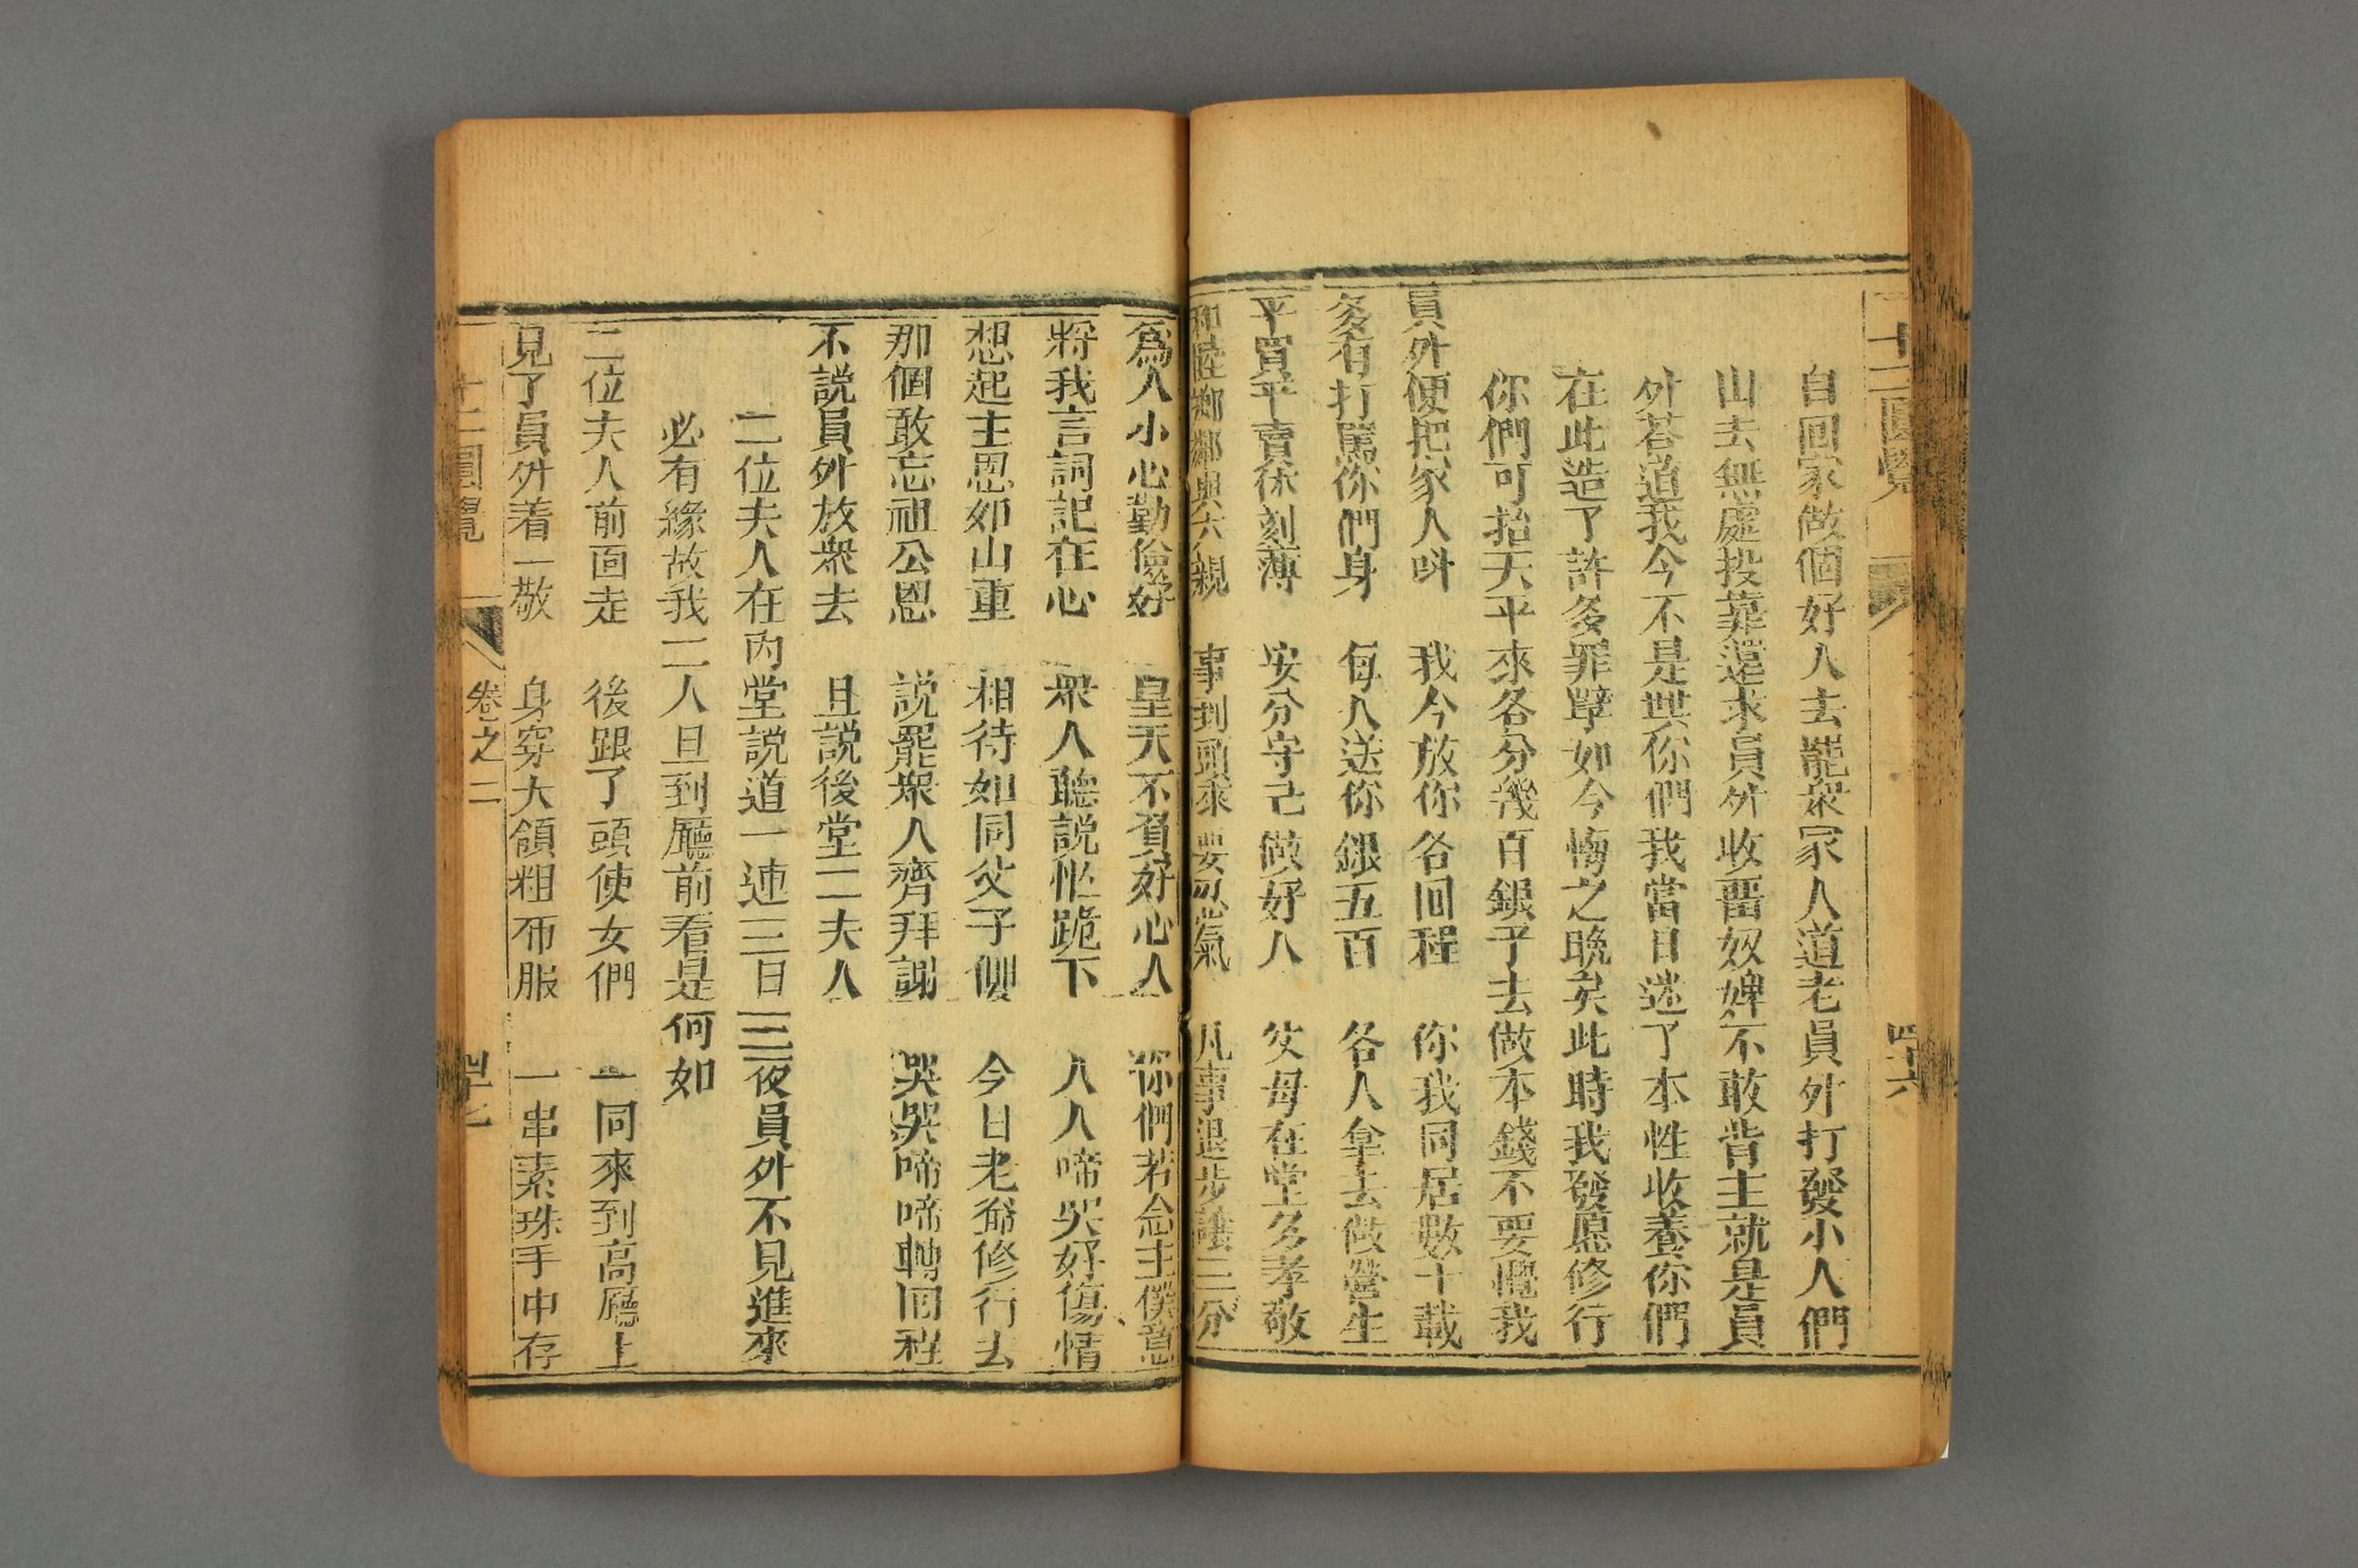 十二圓覺 四十六
自回家做個好人去罷衆家人道老員外打發小人們
山去無處投靠還求員外收畱奴婢不敢背主就是員
外荅道我今不是哄你們我當日迷了本性收養你們
在此造了許多罪孽如今悔之晚矣此時我發愿修行
你們可抬天平來各分幾百銀子去做本錢不要慌我
員外便把家人呌 我今放你各回程 你我同居數十載
多有打罵你們身 每人送你銀五百 各人拿去做營生
平買平賣休刻薄 安分守己做好人 父母在堂多孝敬
和睦鄉鄰與六親 事到頭來要忍氣 凡事退步讓三分
爲人小心勤儉好 皇天不負好心人 你們若念主僕意
將我言詞記在心 衆人聽說忙跪下 人人啼哭好傷情
想起主恩如山重 相待如同父子側 今日老爺修行去
那個敢忘祖公恩 説罷衆人齊拜謝 哭哭啼啼轉回程
不説員外放衆去 且説後堂二夫人
二位夫人在内堂説道一連三日三夜員外不見進來
必有緣故我二人且到廳前看是何如
二位夫人前面走 後跟了頭使女們 一同來到高廳上
見了員外着一敬 身穿大領粗布服 一串素珠手中存
十二圓覺 卷之二 四十七